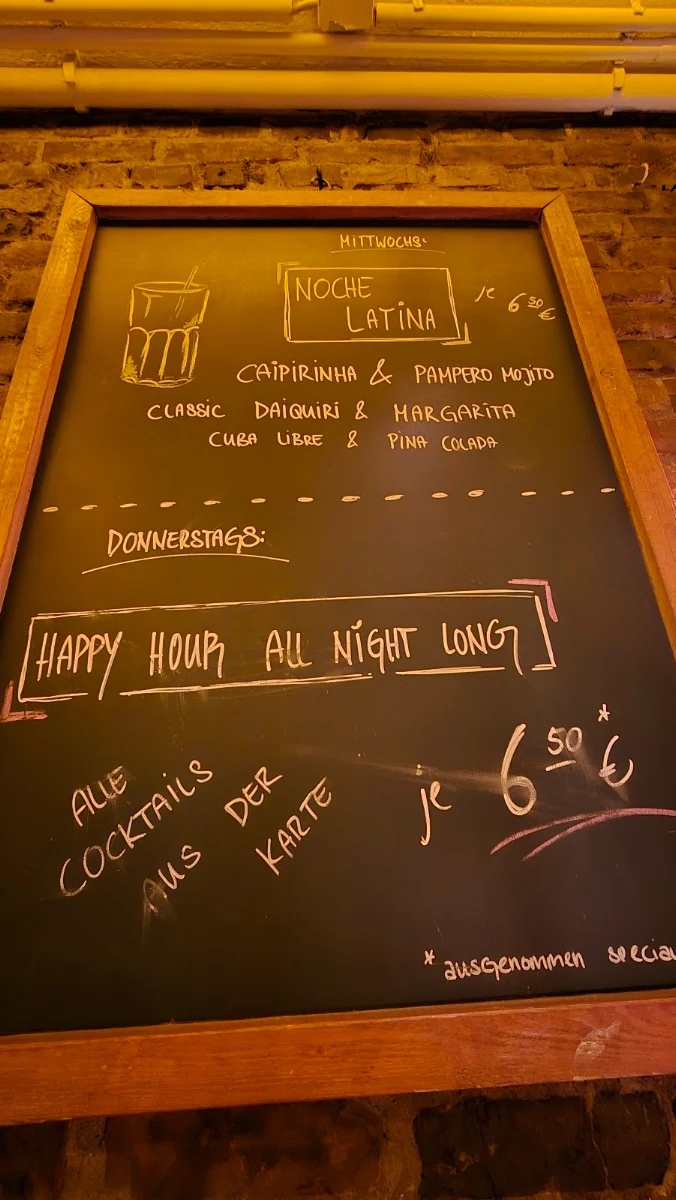 MITTWOCHS:
NOCHE
LATINA
je 6 50 €
CAIPIRINHA & PAMPERO MOJITO
CLASSIC DAIQUIRI & MARGARITA
CUBA LIBRE & PINA COLADA
DONNERSTAGS:
HAPPY HOUR ALL NIGHT LONG
ALLE
COCKTAILS
AUS DER
KARTE
je 6 50 €*
*ausgenommen special